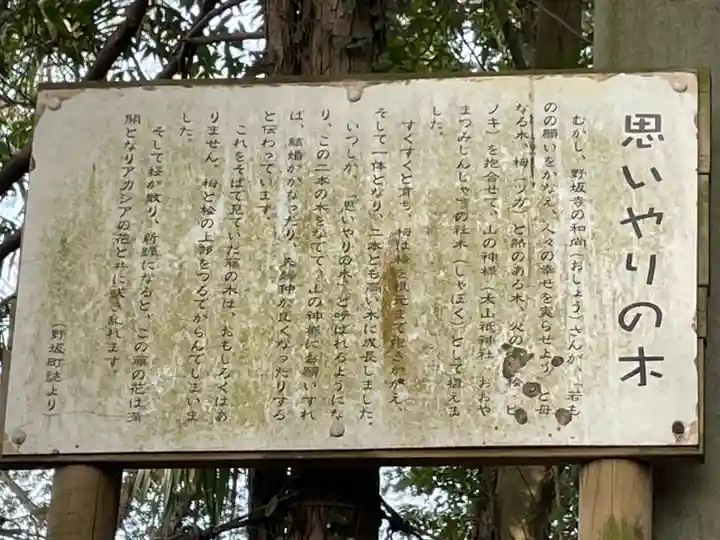 思いやりの木
むかし、野坂寺の和尚(おしょう)さんが、「若も
のの願いをかなえ、人々の幸せを実らせよう」と母
なる木、栂(ツガ)と熱のある木、火の木、桧(ヒ
ノキ)を抱合せて、山の神様(大山祇神社 おおや
まつみじんじゃ)の社木(しゃぼく)として植えま
した。
すくすくと育ち、栂は桧を根元まで抱きかかえ、
そして一体となり、二本とも高い木に成長しました。
いつしか、「思いやりの木」と呼ばれるようにな
り、この二本の木をなでて、山の神様にお願いすれ
ば、結婚がかなったり、夫婦仲が良くなったりする
と伝わっています。
これをそばで見ていた藤の木は、おもしろくはあ
りません。栂と桧の上部をつるでからんでしまいま
した。
そして桜が散り、新緑になると、この藤の花は満
開となりアカシアの花と共に咲き乱れます。
(野坂町誌より)